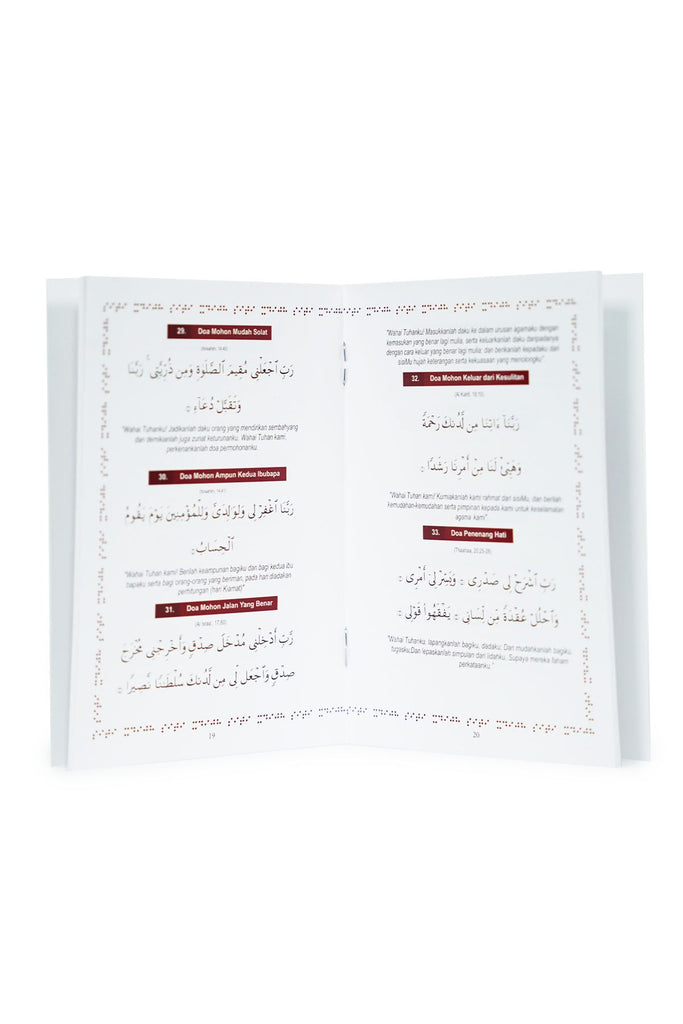 29. Doa Mohon Mudah Solat
(Ibraahim, 14:40)
رَبِّ ٱجْعَلْنِى مُقِيمَ ٱلصَّلَوٰةِ وَمِن ذُرِّيَّتِى ۚ رَبَّنَا
وَتَقَبَّلْ دُعَآءِ
"Wahai Tuhanku! Jadikanlah daku orang yang mendirikan sembahyang
dan demikianlah juga zuriat keturunanku. Wahai Tuhan kami,
perkenankanlah doa permohonanku.
30. Doa Mohon Ampun Kedua Ibubapa
(Ibraahim, 14:41)
رَبَّنَا ٱغْفِرْ لِى وَلِوَٰلِدَىَّ وَلِلْمُؤْمِنِينَ يَوْمَ يَقُومُ
ٱلْحِسَابُ
"Wahai Tuhan kami! Berilah keampunan bagiku dan bagi kedua ibu
bapaku serta bagi orang-orang yang beriman, pada hari diadakan
perhitungan (hari Kiamat)"
31. Doa Mohon Jalan Yang Benar
(Al Israa', 17:80)
رَّبِّ أَدْخِلْنِى مُدْخَلَ صِدْقٍ وَأَخْرِجْنِى مُخْرَجَ
صِدْقٍ وَٱجْعَل لِّى مِن لَّدُنكَ سُلْطَٰنًا نَّصِيرًا
19
"Wahai Tuhanku! Masukkanlah daku ke dalam urusan agamaku dengan
kemasukan yang benar lagi mulia, serta keluarkanlah daku daripadanya
dengan cara keluar yang benar lagi mulia; dan berikanlah kepadaku dari
sisiMu hujah keterangan serta kekuasaan yang menolongku"
32. Doa Mohon Keluar dari Kesulitan
(Al Kahfi, 18:10)
رَبَّنَآ ءَاتِنَا مِن لَّدُنكَ رَحْمَةً
وَهَيِّئْ لَنَا مِنْ أَمْرِنَا رَشَدًا
"Wahai Tuhan kami! Kurniakanlah kami rahmat dari sisiMu, dan berilah
kemudahan-kemudahan serta pimpinan kepada kami untuk keselamatan
agama kami"
33. Doa Penenang Hati
(Thaahaa, 20:25-28)
رَبِّ ٱشْرَحْ لِى صَدْرِى وَيَسِّرْ لِىٓ أَمْرِى
وَٱحْلُلْ عُقْدَةً مِّن لِّسَانِى يَفْقَهُوا۟ قَوْلِى
"Wahai Tuhanku, lapangkanlah bagiku, dadaku; Dan mudahkanlah bagiku,
tugasku,Dan lepaskanlah simpulan dari lidahku, Supaya mereka faham
perkataanku."
20